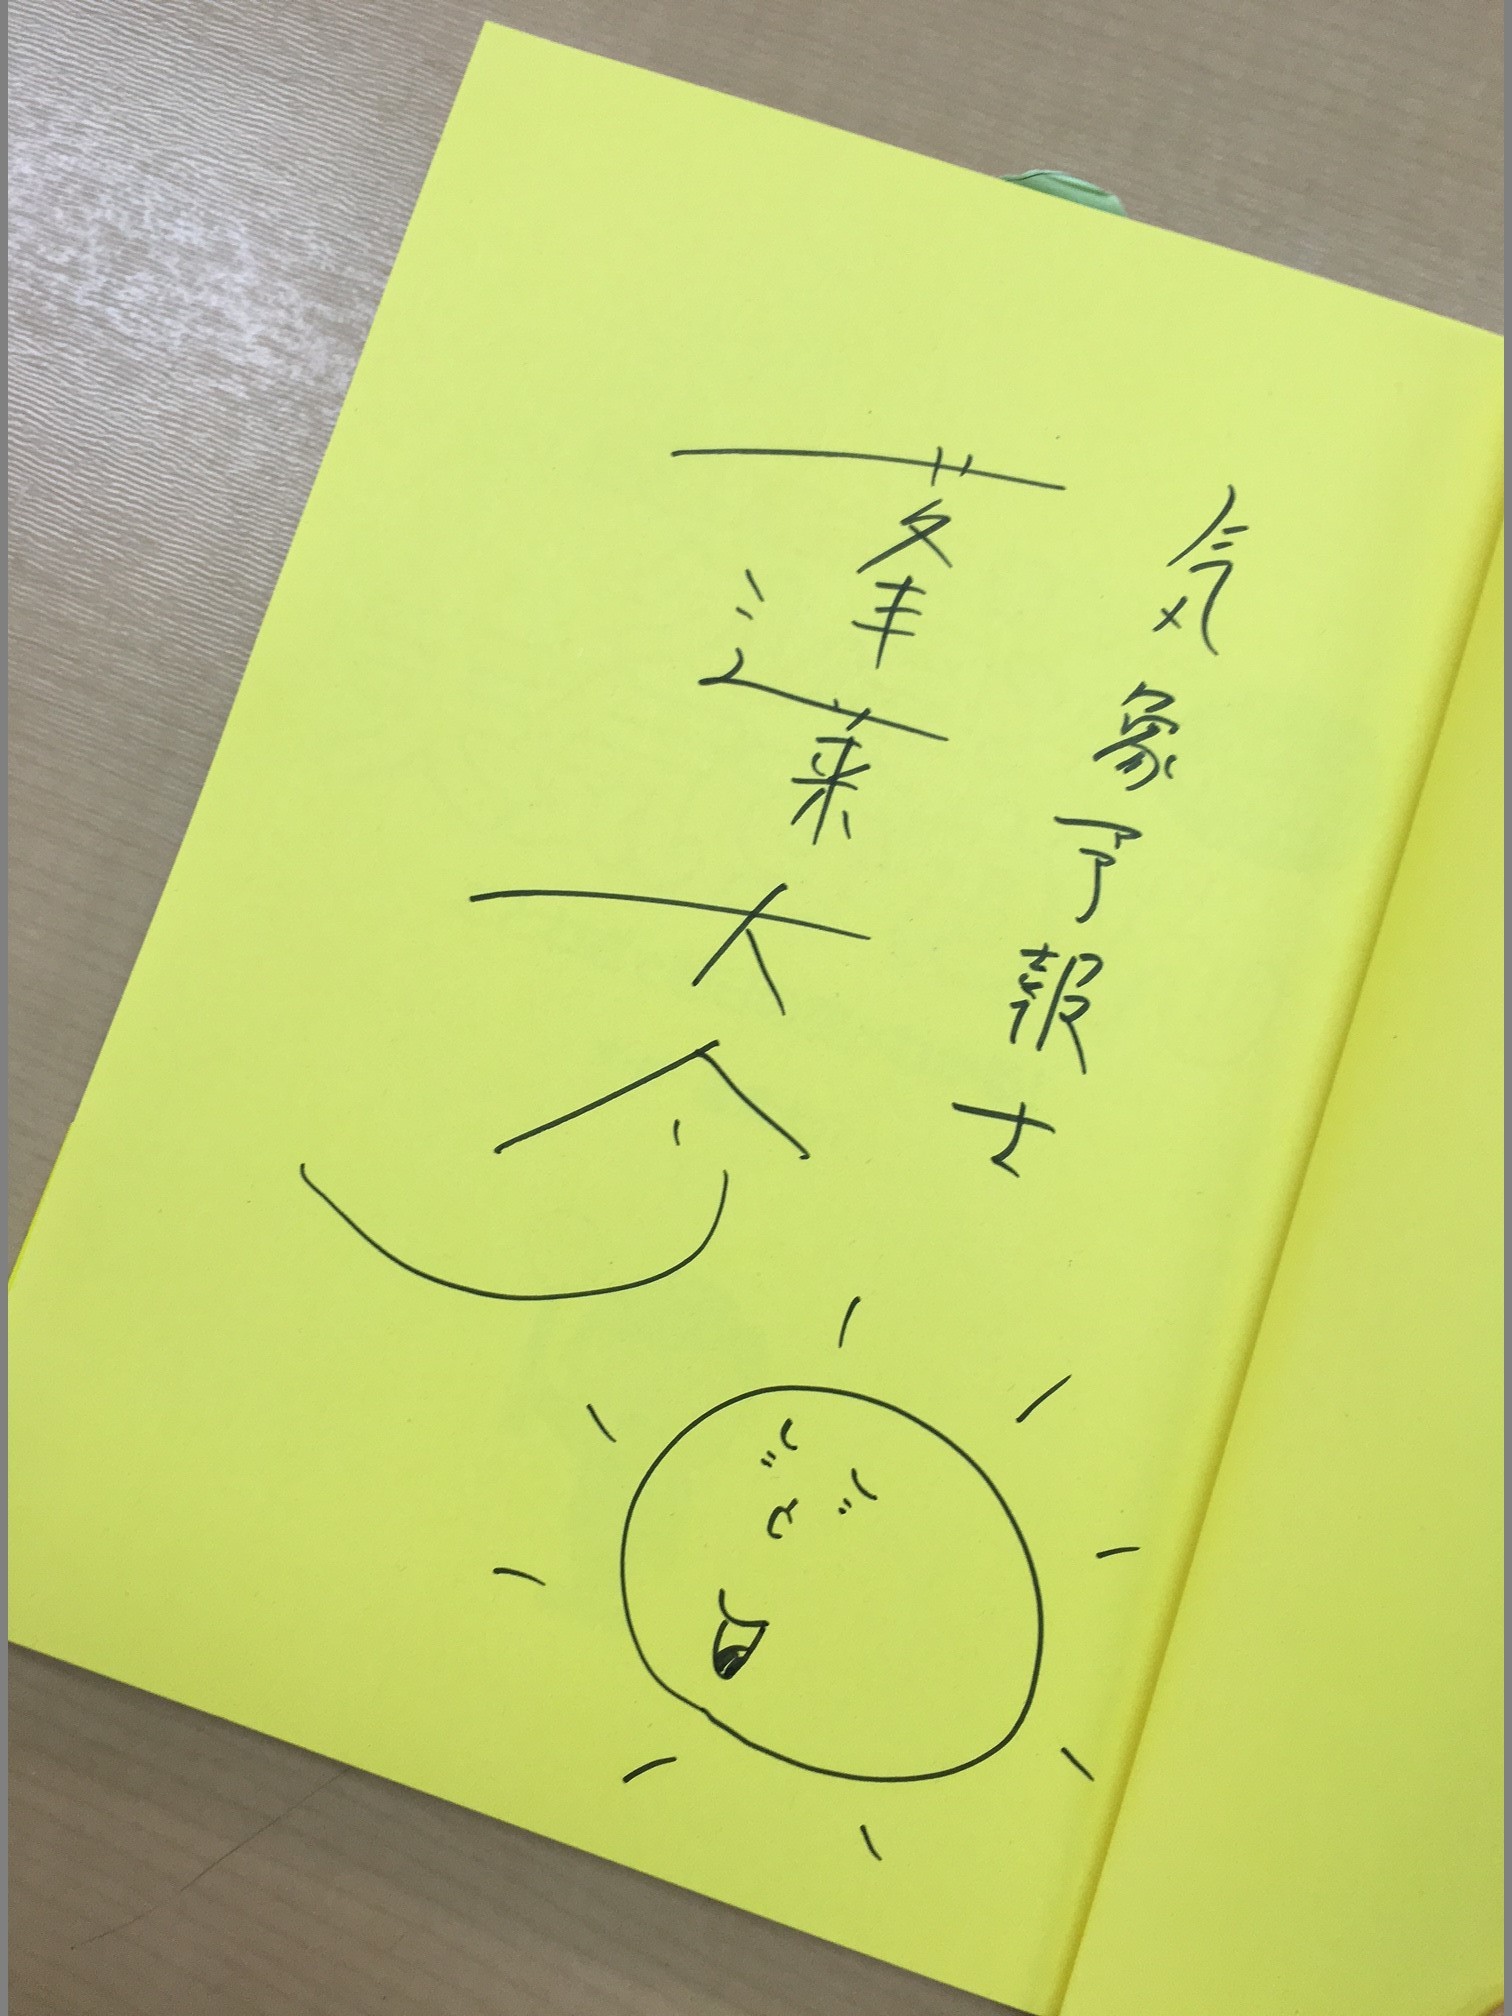 気象予報士
蓬莱大介